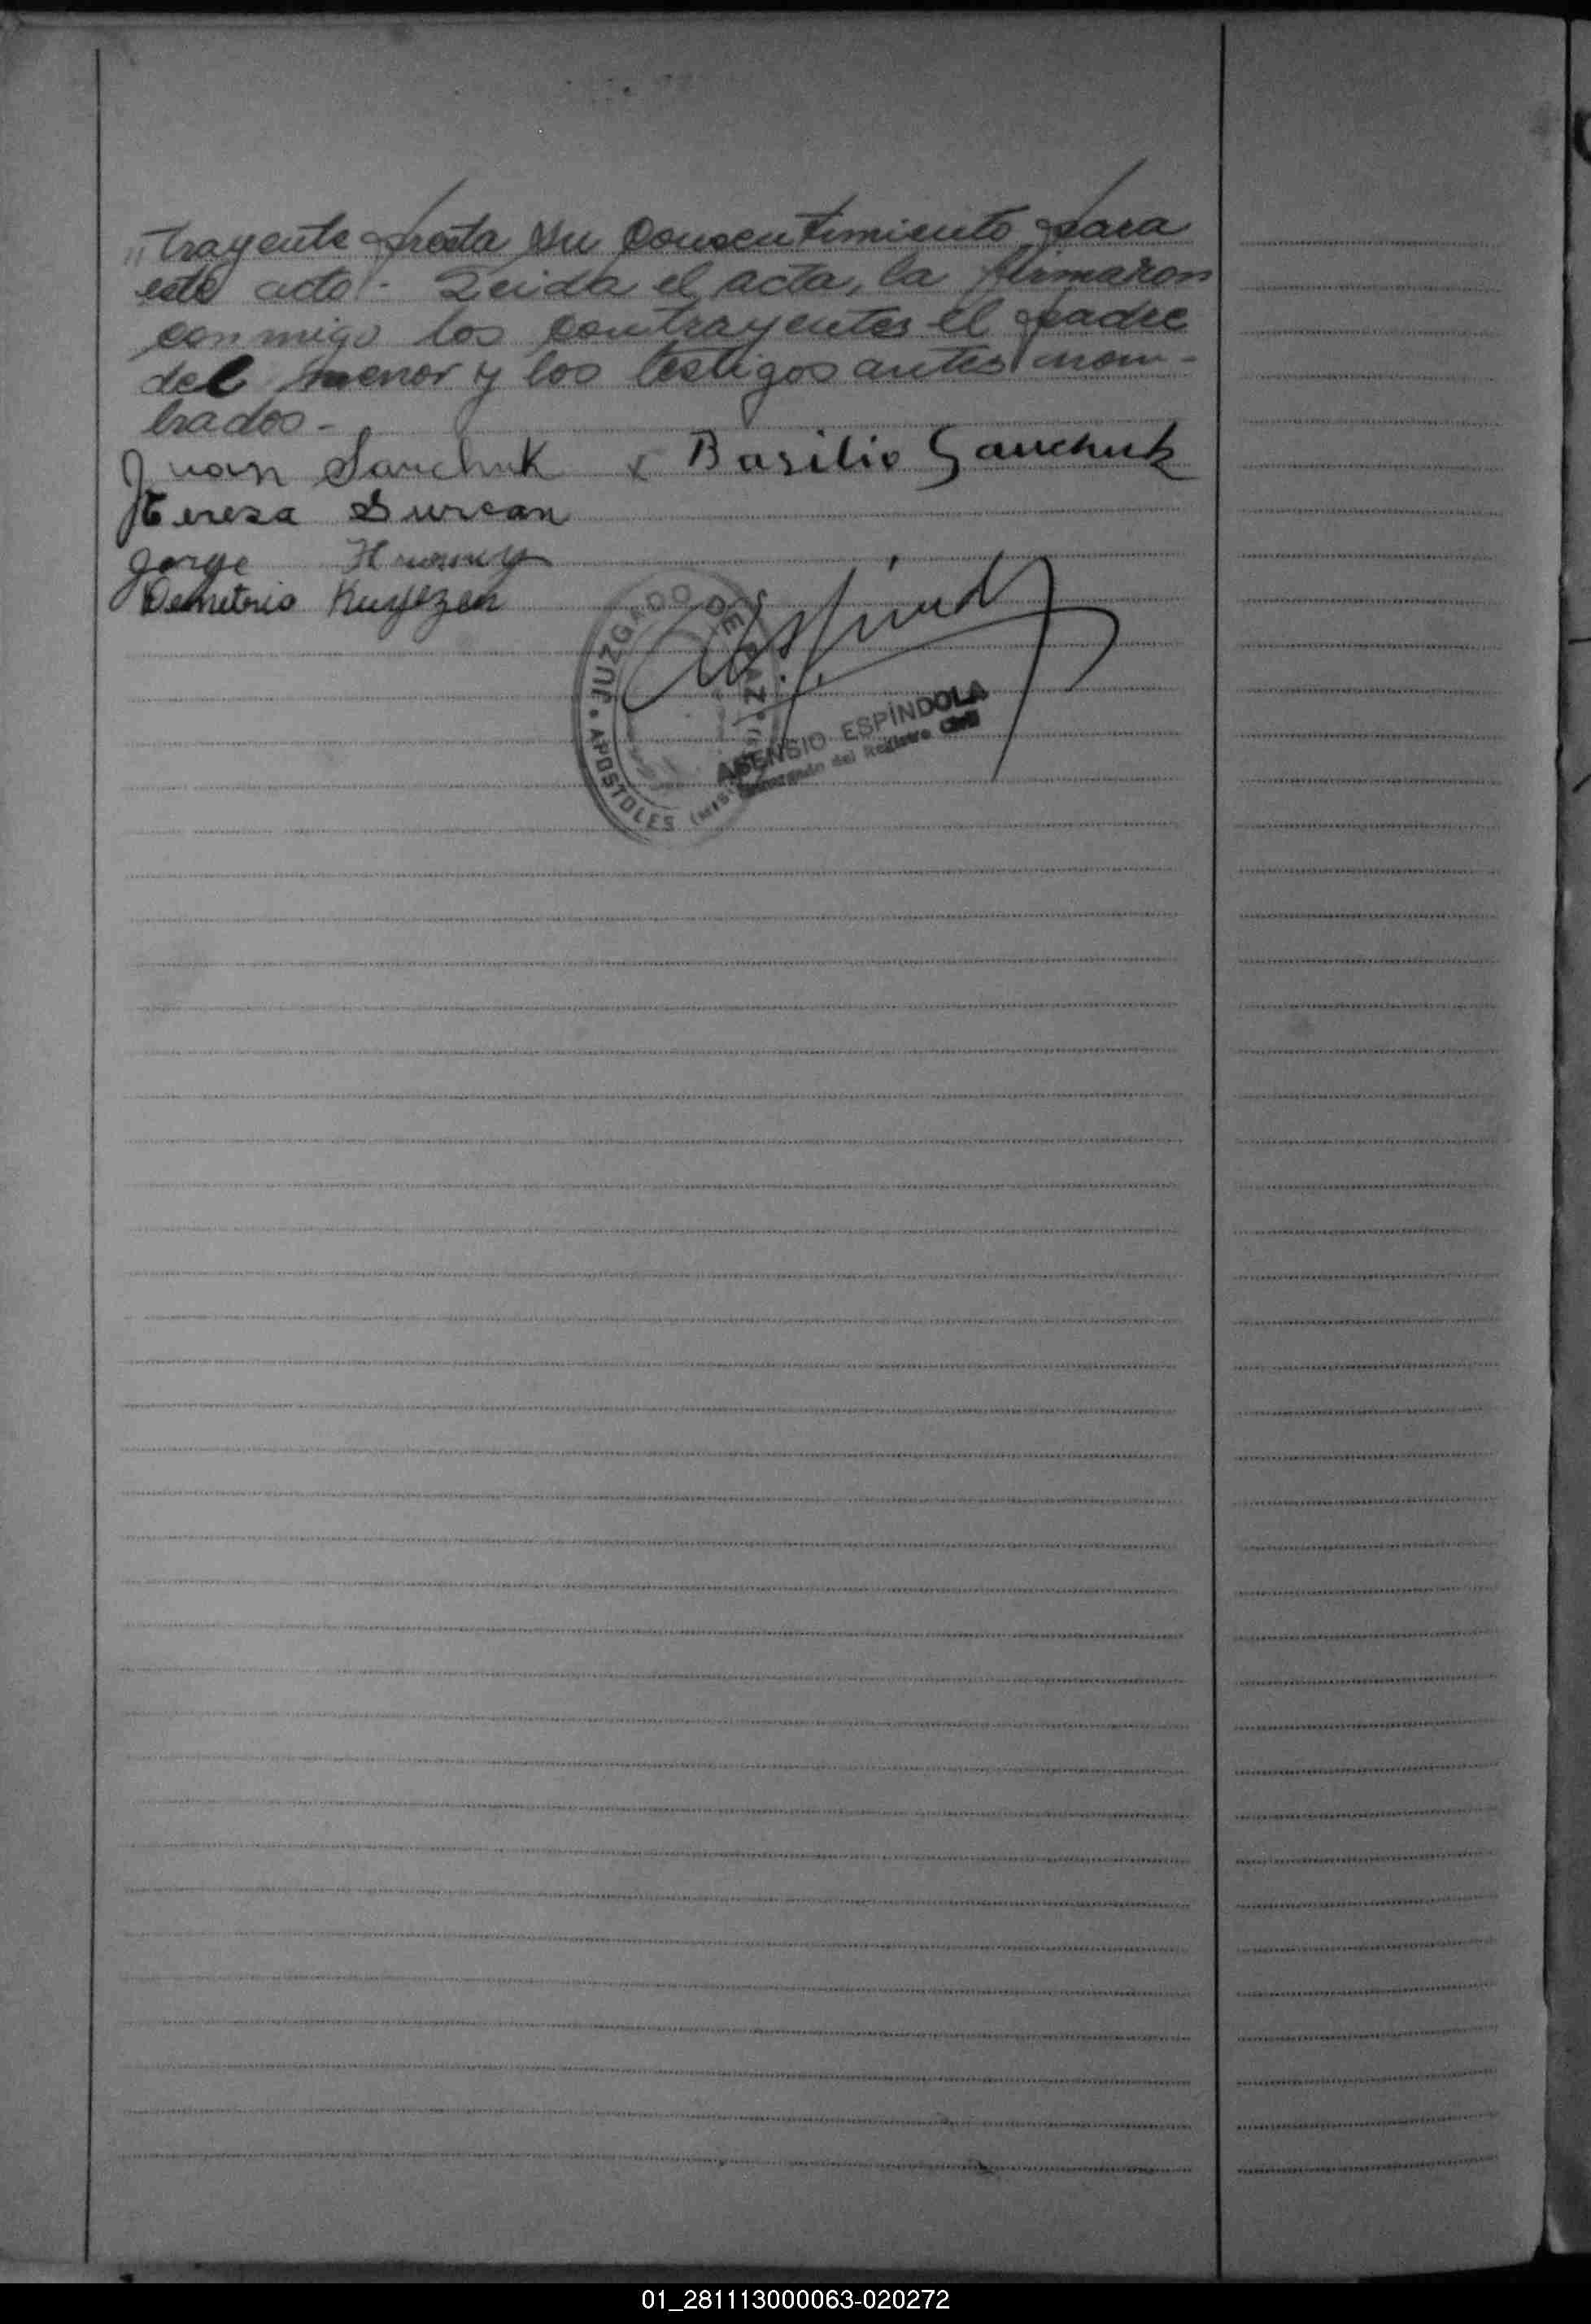 "trayente presta su consentimiento para
este acto.- Leida el acta, la firmaron
conmigo los contrayentes el padre
del menor y los testigos antes nom-
brados -
Juan Sauchuk x Basilio Sauchuk
Teresa Durcan
Jorge
Demetrio
JUZGADO DE PAZ
• APOSTOLES (MIS
ASENSIO ESPÍNDOLA
Encargado del Registro Civil
01_281113000063-020272